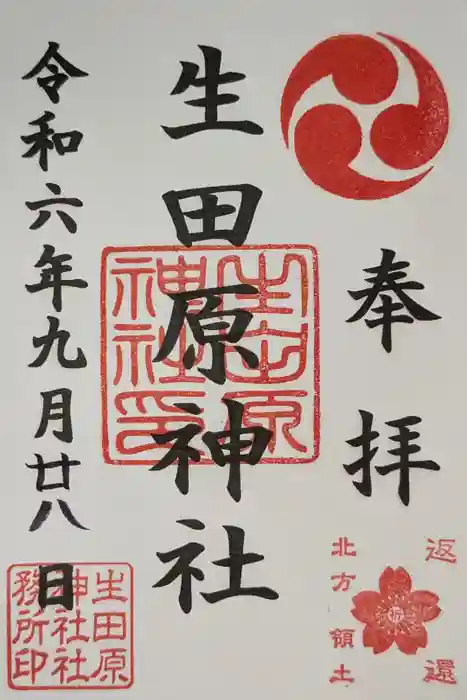 奉拝
返還
北方領土
生田原神社
生田原神社印
令和六年九月廿八日
生田原神社社務所印